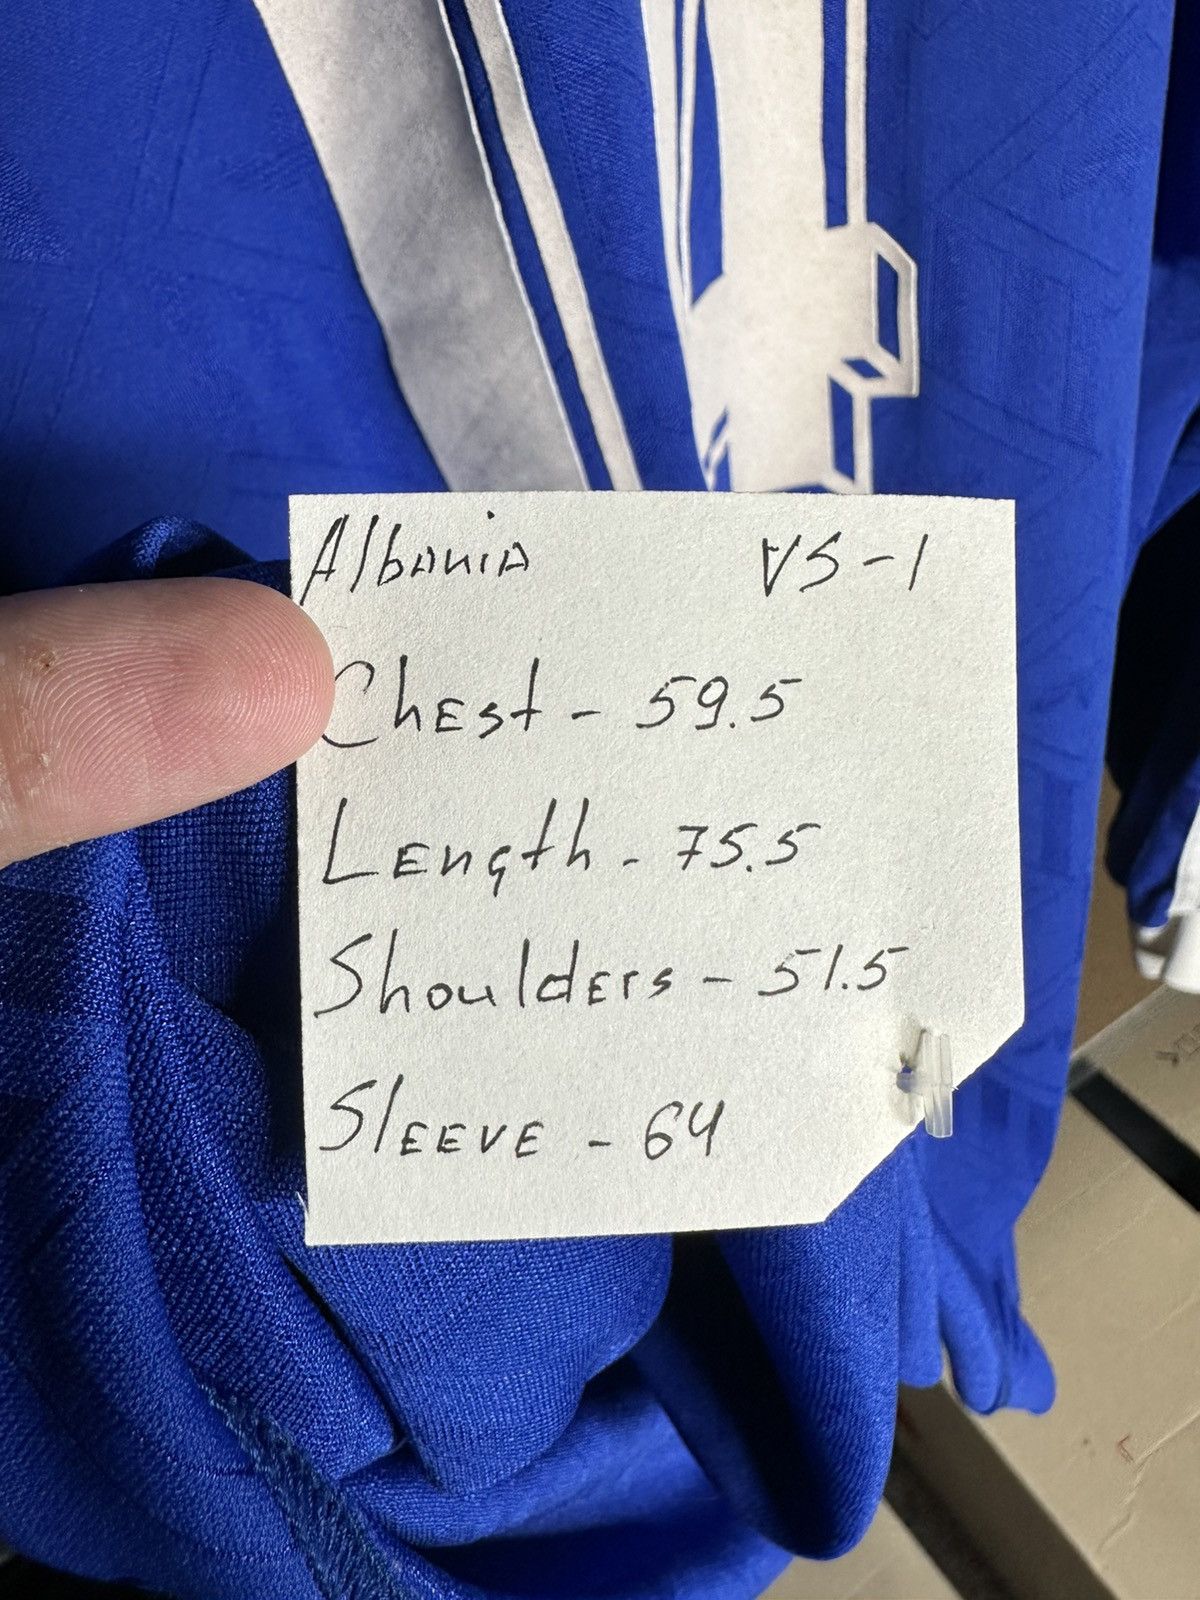 Albania VS-1
Chest - 59.5
Length - 75.5
Shoulders - 51.5
Sleeve - 64